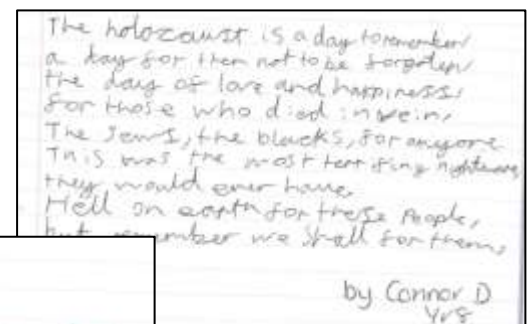 The holocaust is a day to remember
a day for them not to be forgotten
the day of love and happiness,
for those who died in vein,
The Jews, the blacks, for anyone
This was the most terrifying nightmare
they would ever have,
Hell on earth for these people,
but remember we shall for them,
by Connor D
Yr8